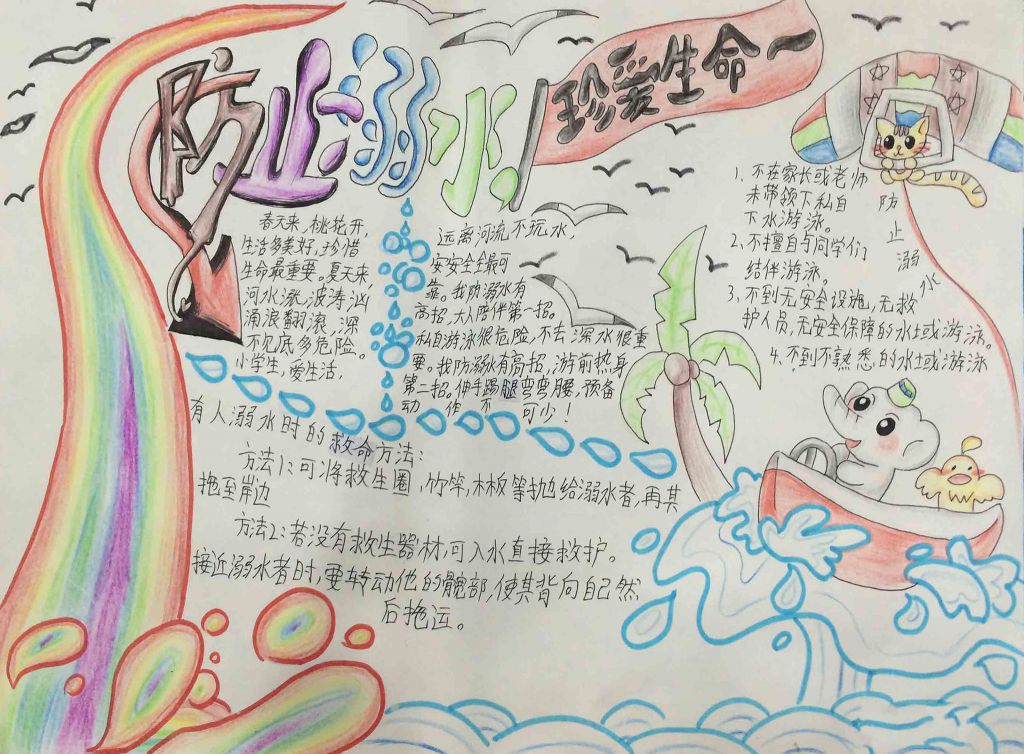 防止溺水
珍爱生命一
春天来,桃花开,
生活多美好,珍惜
生命最重要。夏天来,
河水涨,波涛汹
涌浪翻滚,深
不见底多危险。
小学生,爱生活,
远离河流不玩水,
安安全全最可
靠。我防溺水有
高招,大人陪伴第一招。
私自游泳很危险,不去深水很重
要。我防溺水有高招,游前热身
第二招。伸手踢腿弯弯腰,预备
动作不可少!
1、不在家长或老师
未带领下私自
下水游泳。
2、不擅自与同学们
结伴游泳。
3、不到无安全设施,无救
护人员,无安全保障的水土或游泳。
4、不到不熟悉的水土或游泳
防止溺水
有人溺水时的救命方法:
方法1:可将救生圈,竹竿,木板等抛给溺水者,再其
拖至岸边
方法2:若没有救生器材,可入水直接救护。
接近溺水者时,要转动他的髋部,使其背向自己然
后拖运。